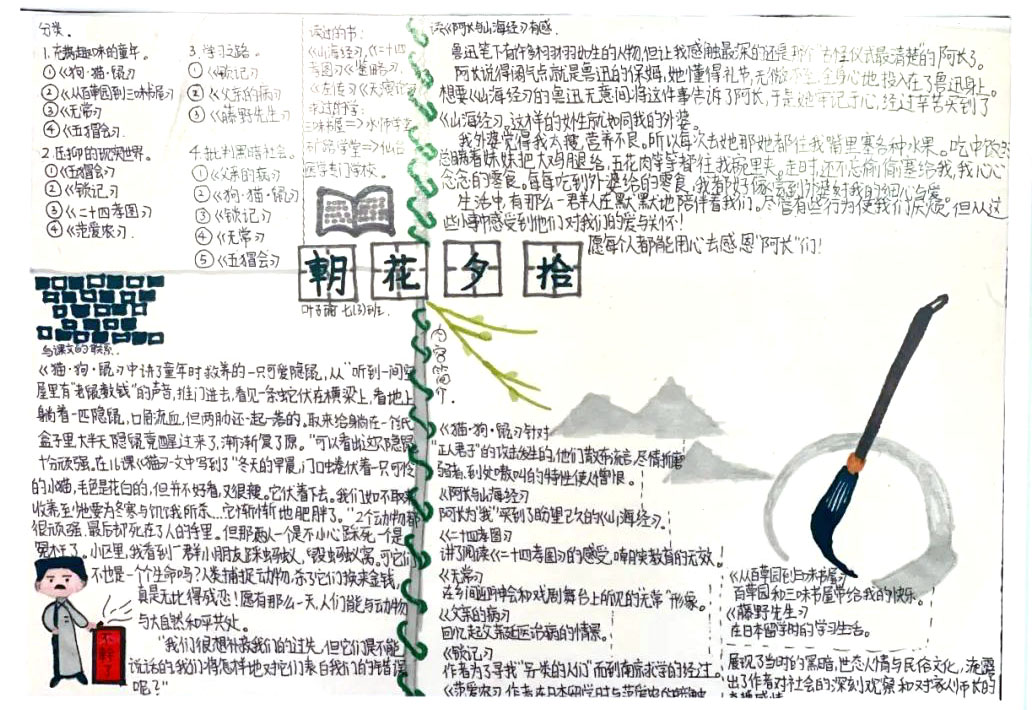 分类。
1.充满趣味的童年。
①《狗·猫·鼠》
②《从百草园到三味书屋》
③《无常》
④《五猖会》
2.压抑的现实世界。
①《五猖会》
②《琐记》
③《二十四孝图》
④《范爱农》
3.学习之路。
①《琐记》
②《父亲的病》
③《藤野先生》
4.批判黑暗社会。
①《父亲的病》
②《狗·猫·鼠》
③《琐记》
④《无常》
⑤《五猖会》
读过的书:
《山海经》,《二十四
孝图》《鉴略》,
《左传》《天演论》
求过的学:
三味书屋=>水师学堂
矿路学堂=>仙台
医学专门学校。
读《阿长与山海经》有感.
鲁迅笔下有许多栩栩如生的人物,但让我感触最深的还是那个 的阿长了。
阿长说得阔气点就是鲁迅的保姆,她懂得礼节,无微不至,全身心地投入在了鲁迅身上。
想要《山海经》的鲁迅无意间将这件事告诉了阿长,于是她牢记于心,经过辛苦买到了
《山海经》,这样的她性就如同我的外婆。
我外婆觉得我太瘦,营养不良。所以每次去她那她都往我嘴里塞各种水果。吃中饭时
总瞒着妹妹把大鸡腿给,五花肉等等都往我碗里夹。走时,还不忘偷偷塞给我,我心心
念念的零食。每每吃到外婆给的零食,我都好像感到外婆对我的细心与爱。
生活中,有那么一群人在默默地陪伴着我们。尽管有些行为使我们厌烦。但从这
些小事中感受到他们对我们的爱与关怀!
愿每个人都能用心去感恩"阿长"们!
朝花夕拾
七(3)班.
与课文的联系.
《猫·狗·鼠》中讲了童年时救养的一只可爱隐鼠,从"听到一间空
屋里有"老鼠数钱"的声音,推门进去,看见一条蛇伏在横梁上,看地上
躺着一匹隐鼠,口角流血,但两肋还一起一落的。取来给躺在一个纸
盒子里大半天隐鼠竟醒过来了,渐渐复了原。"可以看出这只隐鼠
十分顽强。在16课《猫》一文中写到了"冬天的早晨,门口蜷伏着一只可怜
的小猫,毛色是花白的,但并不好看,又很瘦。它伏着不去。我们如不取来
收养至少她要为冬寒与饥饿所杀…它渐渐地肥胖了。"2个动物都
很顽强.最后却死在了人的手里。但那两人一个是不小心踩死一个是
冤枉了。小区里,我看到一群小朋友踩蚂蚁,毁蚂蚁窝。可它们
不也是一个个生命吗?人类捕捉动物,杀了它们换来金钱,
真是无比得残忍!愿有那么一天,人们能与动物
与大自然和平共处。
"我们很想补救我们的过失,但它们是不能
说话的,我们将怎样地对它们表白我们的错误
呢?"
不幹了
内容简介.
《猫·狗·鼠》针对
"正人君子"的攻击发生的,他们散布流言,尽情折磨
弱者,到处嗷叫的特性使人憎恨。
《阿长与山海经》
阿长为"我"买到了盼望已久的《山海经》。
《二十四孝图》
讲了阅读《二十四孝图》的感受,嘲笑教育的无效。
《无常》
在乡间迎神会和戏剧舞台上所见的"无常"形象。
《父亲的病》
回忆起父亲延医治病的情景。
《琐记》
作者为了寻找"另类的人们"而到南京求学的经过。
《范爱农》作者在日本留学时与范爱农
《从百草园到三味书屋》
百草园和三味书屋带给我的快乐。
《藤野先生》
在日本留学时的学习生活。
展现了当时的黑暗,世态人情与民俗文化,流露
出了作者对社会的深刻观察和对家人师长的